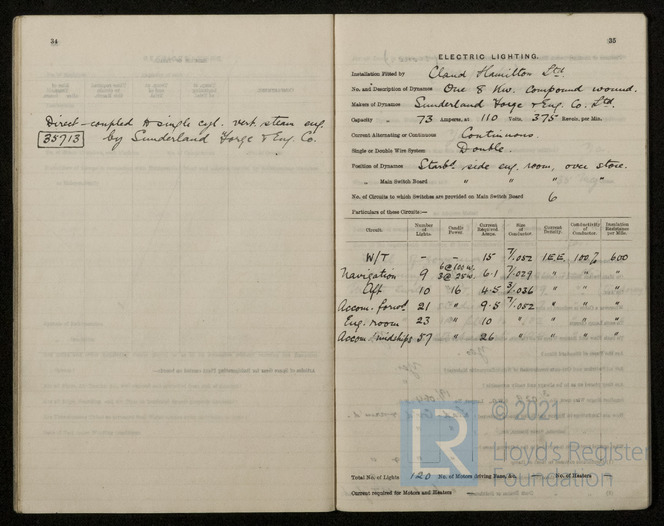 34
Direct-coupled to single cyl. vert. steam eng.
35713 by Sunderland Forge & Eng. Co.
35
ELECTRIC LIGHTING.
Installation Fitted by Claud Hamilton Ltd.
No. and Description of Dynamos One 8 Kw. compound wound.
Makers of Dynamos Sunderland Forge & Eng. Co. Ltd.
Capacity „ 73 Amperes, at 110 Volts, 375 Revols. per Min.
Current Alternating or Continuous Continuous.
Single or Double Wire System Double.
Position of Dynamos Starbd. side eng. room, over store.
„ Main Switch Board " " " "
No. of Circuits to which Switches are provided on Main Switch Board 6
Particulars of these Circuits:—
Circuit. Number of Lights. Candle Power. Current Required Amps. Size of Conductor. Current Density. Conductivity of Conductor. Insulation Resistance per Mile.
W/T – – 15 7/.052 I.E.E. 100% 600
Navigation 9 6@100w. 3@25w. 6.1 7/.029 " " "
Aft 10 16 4.5 3/.036 " " "
Accom. forwd. 21 " 9.5 7/.052 " " "
Eng. room 23 " 10 " " " "
Accom. midships 57 " 26 " " " "
Total No. of Lights 120 No. of Motors driving Fans, &c. — No. of Heaters
Current required for Motors and Heaters —
LR
© 2021
Lloyd's Register
Foundation